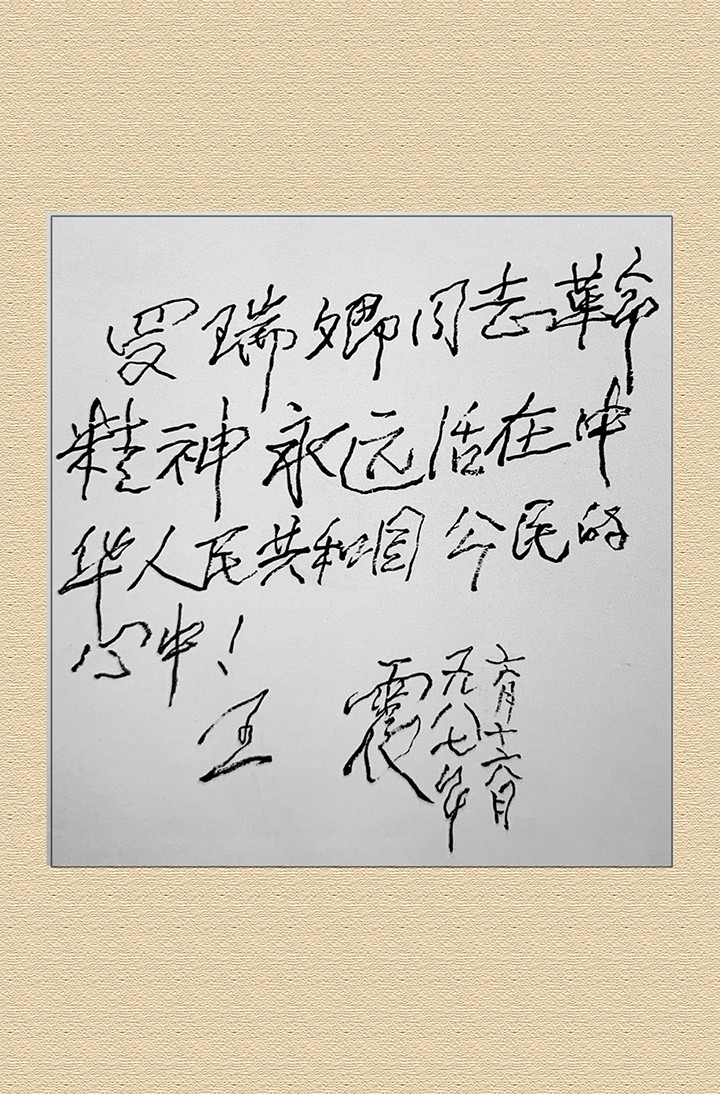 罗瑞卿同志革命
精神永远活在中
华人民共和国公民的
心中！
王震
一九八七年
六月十六日